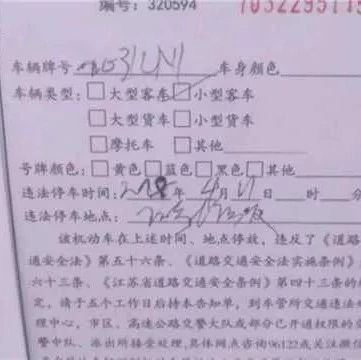 编号: 320594
车辆牌号 031UN1 车身颜色
车辆类型: □大型客车 □小型客车
□大型货车 □小型货车
□摩托车 □其他
号牌颜色: □黄色 □蓝色 □黑色 □其他
违法停车时间: 2018年 4月 日 时 分
违法停车地点:
该机动车在上述时间、地点停放,违反了《道路
通安全法》第五十六条、《道路交通安全法实施条例》
六十三条、《江苏省道路交通安全条例》第四十三条的
定,请于五个工作日后持本告知单,到车管所交通违法
理中心,市区、高速公路交警大队或部分已开通权限的交
警中队、派出所接受处理,具体网点咨询96122或关注微信